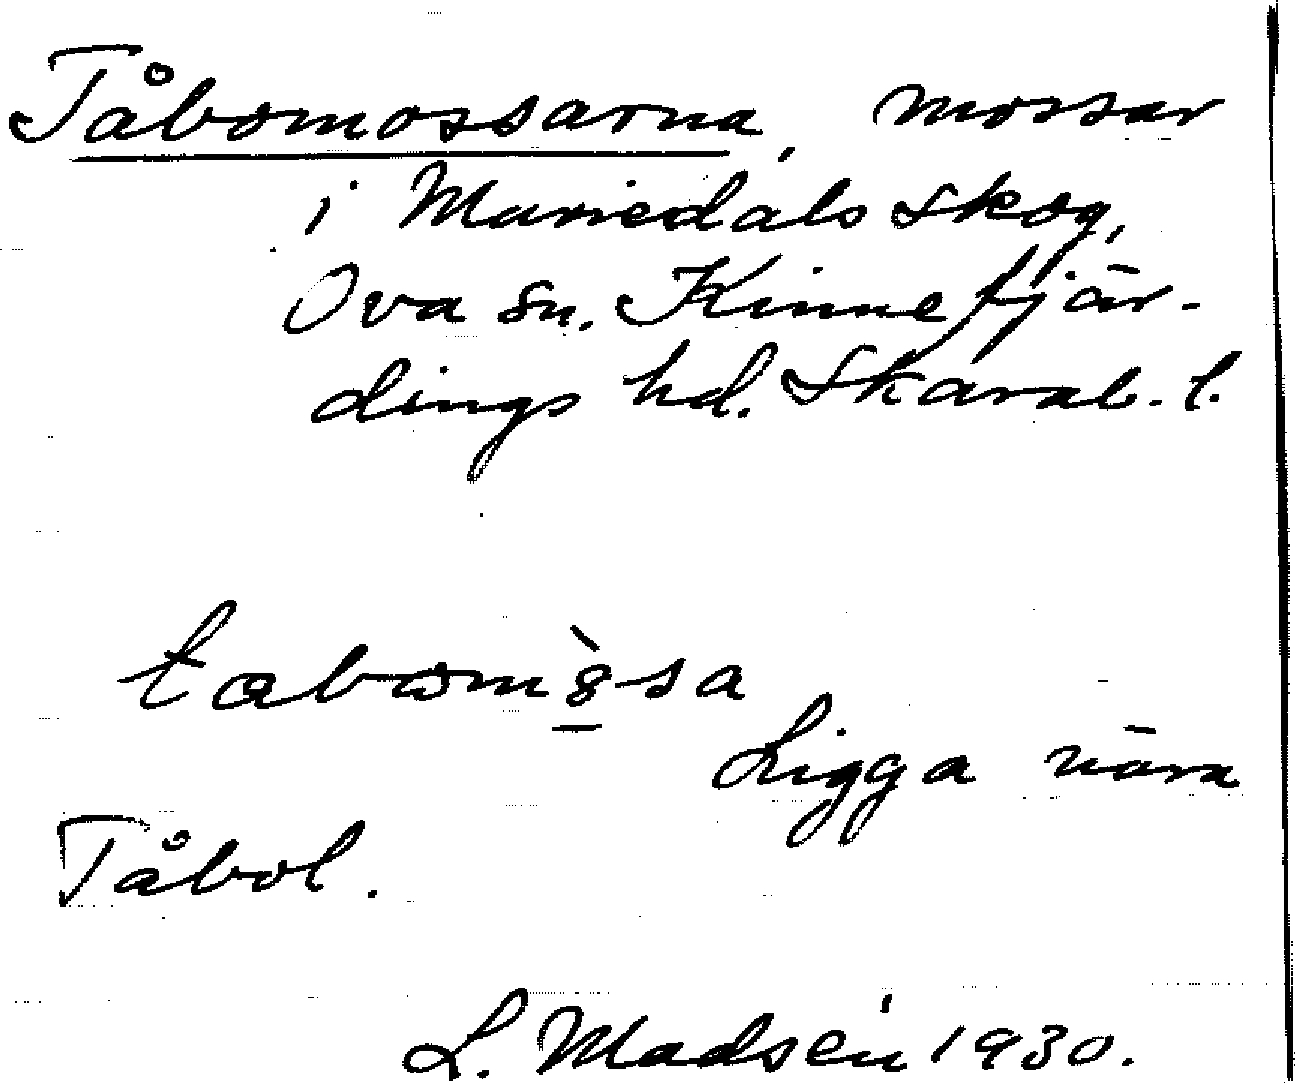 Tåbomossarna, mossar
i Mariedals skog,
Ova sn. Kinnefjär-
dings hd. Skarab. l.
Ligga nära
Tåbol.
L. Madsén 1930.